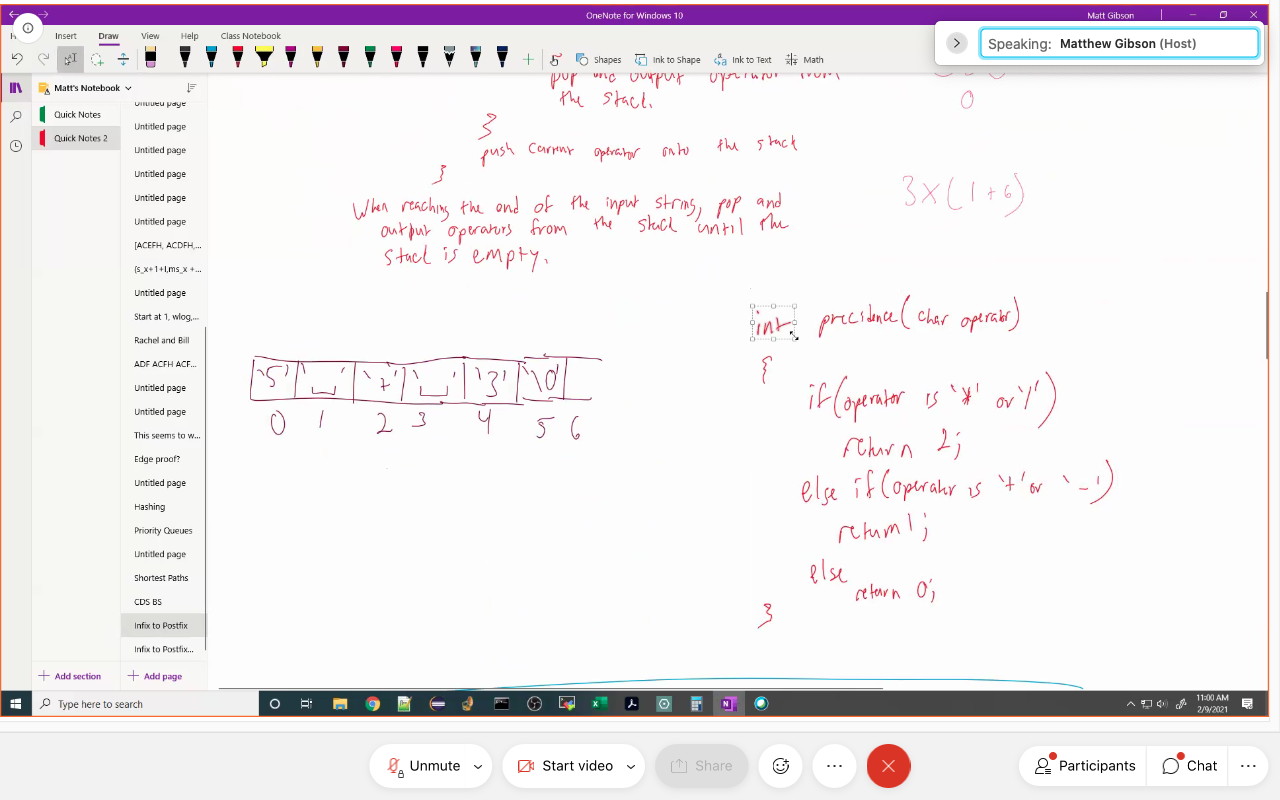 OneNote for Windows 10
Matt Gibson
Insert
Draw
View
Help
Class Notebook
Speaking: Matthew Gibson (Host)
Shapes
Ink to Shape
Ink to Text
Math
Matt's Notebook
Quick Notes
Quick Notes 2
Untitled page
Untitled page
Untitled page
Untitled page
Untitled page
Untitled page
[ACEFH, ACDFH,...
(s_x+1+l,ms_x +...
Untitled page
Start at 1, wlog,...
Rachel and Bill
ADF ACFH ACF...
Untitled page
Untitled page
This seems to w...
Edge proof?
Untitled page
Hashing
Priority Queues
Untitled page
Shortest Paths
CDS BS
Infix to Postfix
Infix to Postfix...
Add section
Add page
pop and output operator from
the stack.
}
push current operator onto the stack
}
When reaching the end of the input string, pop and
output operators from the stack until the
stack is empty.
0
3X(1+6)
'5' '⎵' '+' '⎵' '3' '\0'
0 1 2 3 4 5 6
int precidence(char operator)
{
if(operator is '*' or '/')
return 2;
else if(operator is '+' or '-')
return 1;
else
return 0;
}
Type here to search
11:00 AM
2/9/2021
Unmute
Start video
Share
Participants
Chat